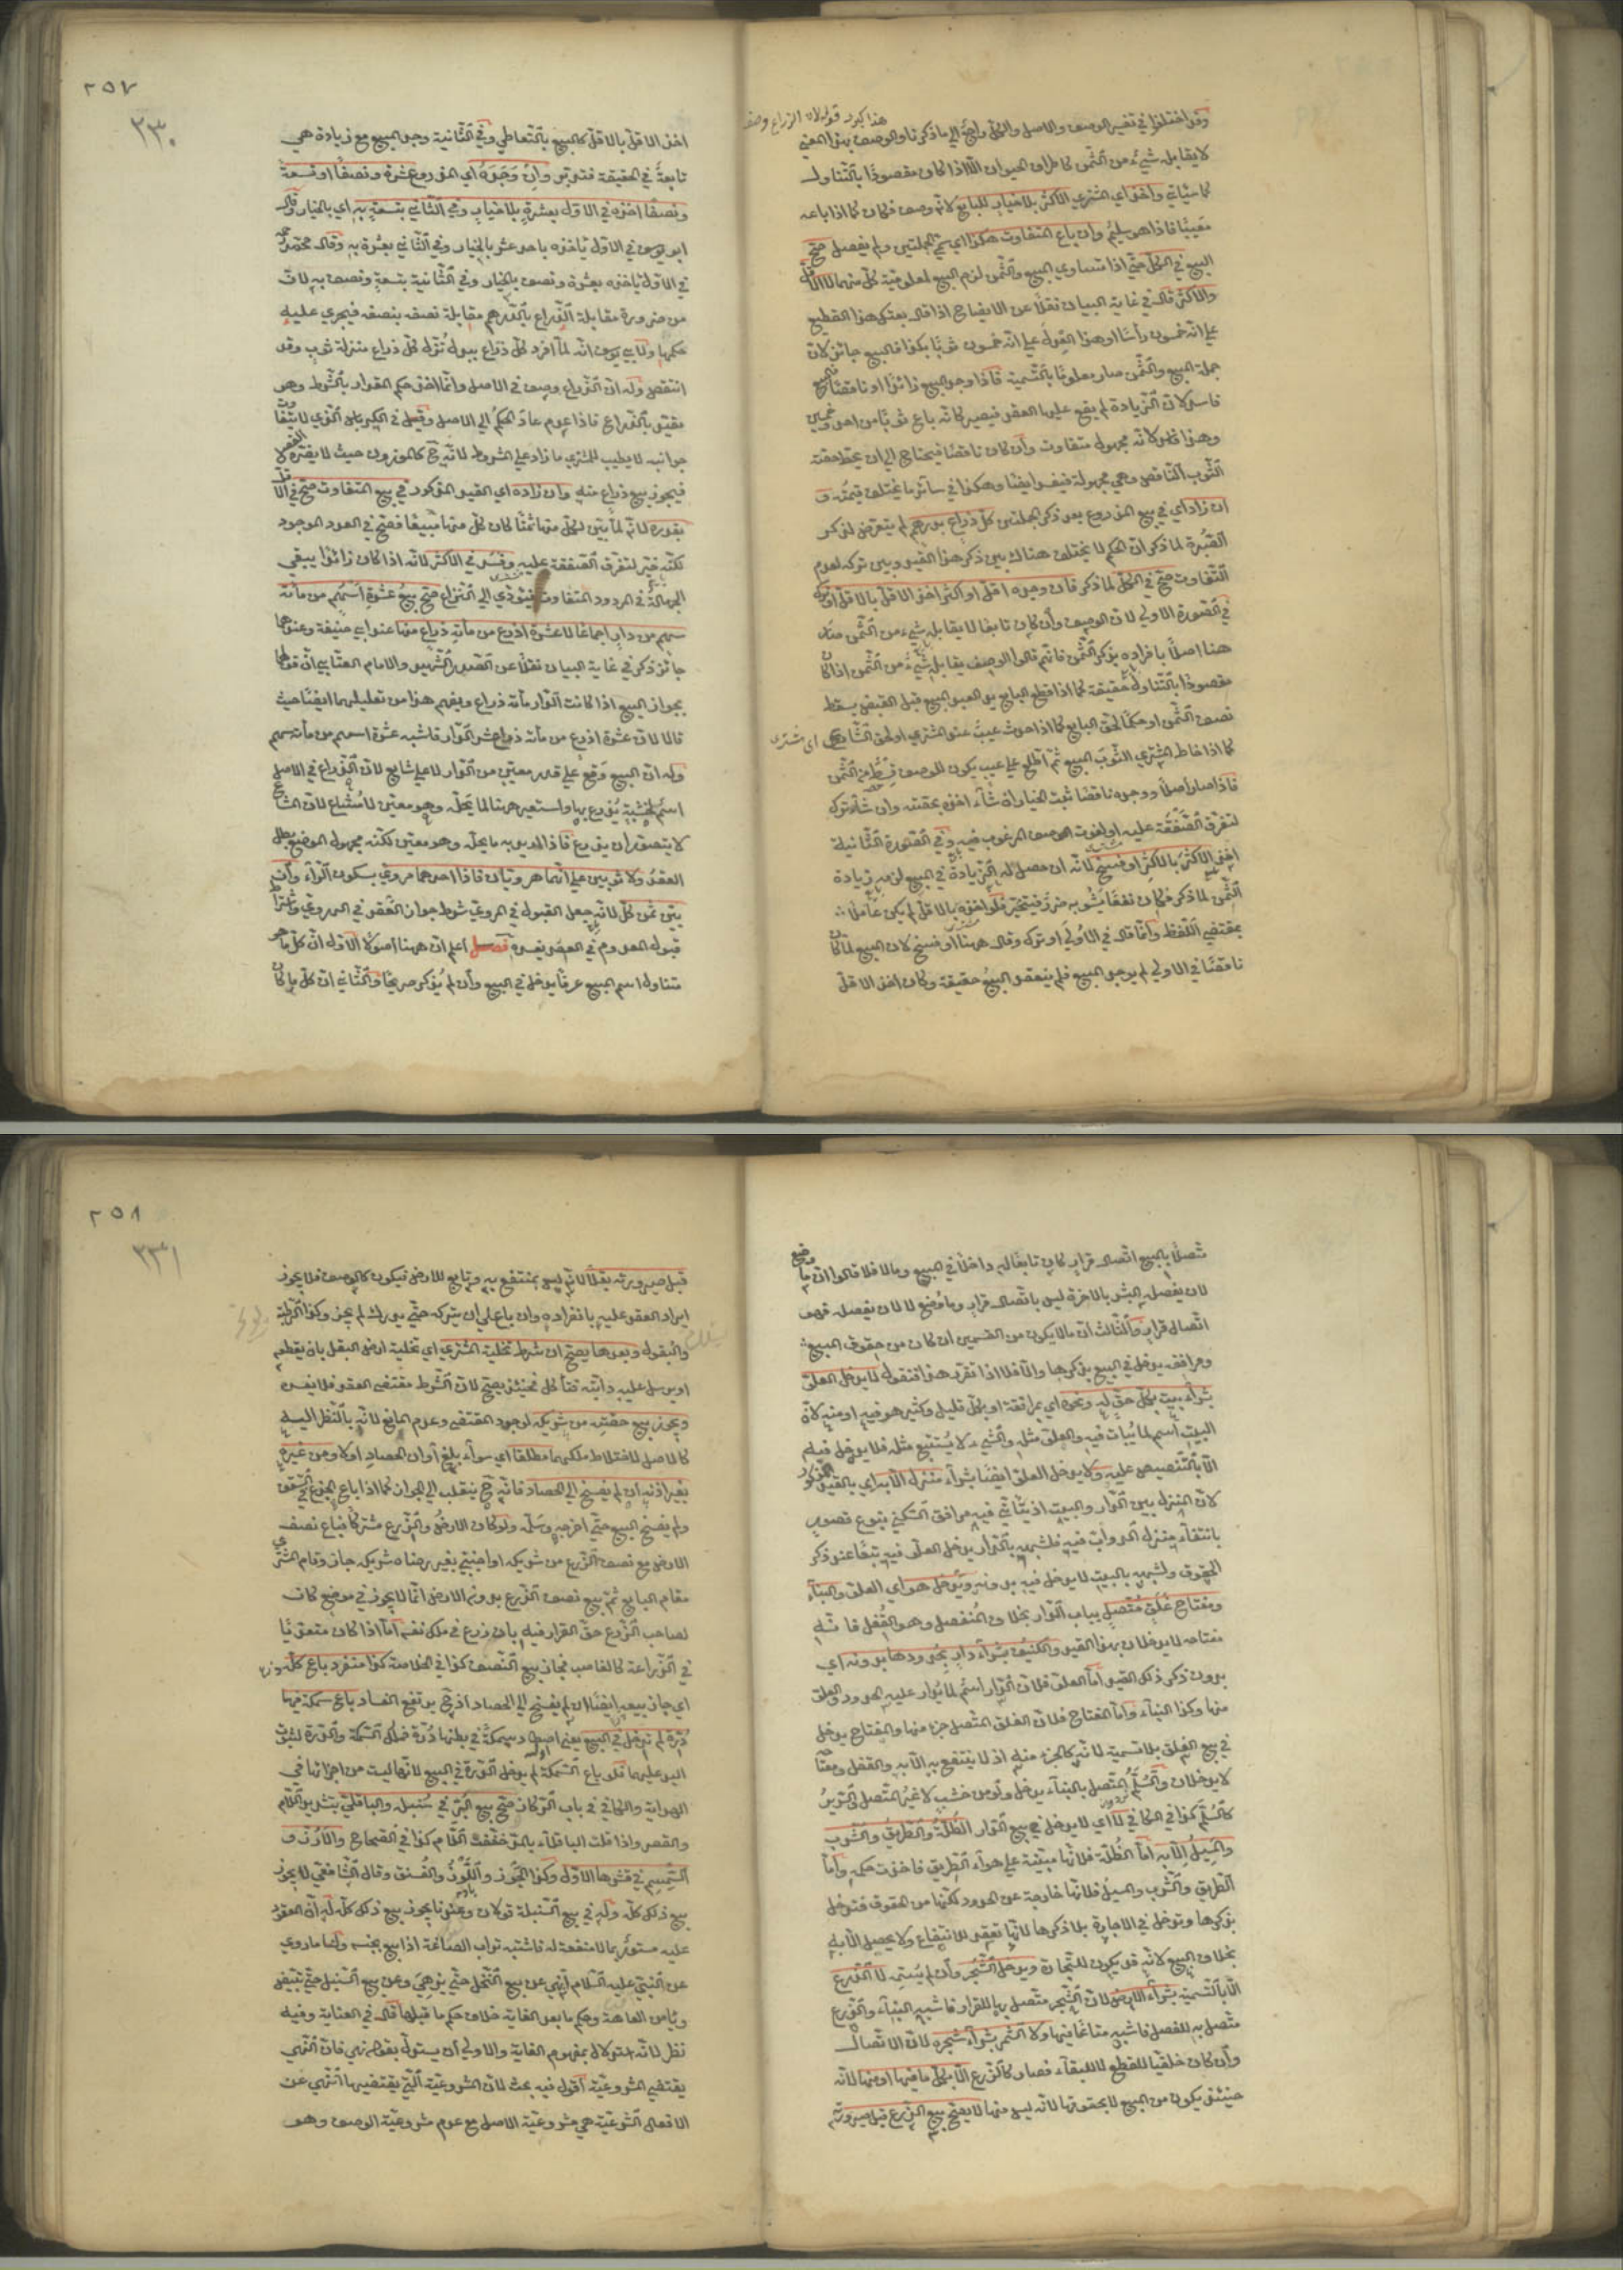 وقد اختلفوا في تفسير الوصف والاصل والكل راجع الى ما ذكرنا والوصف بهذا المعنى
لا يقابله شيء من الثمن كاطراف الحيوان الا اذا كان مقصودا بالتناول
كما سيأتي واخذ اي المشتري الاكثر بلا خيار للبايع لانه وصف فكان كما اذا باعه
معيبا فاذا هو سليم وان باع المتفاوت هكذا اي سمى الجملتين ولم يفصل صح
البيع في الكل حتى اذا تساوى المبيع والثمن لزم البيع لمعلومية كل منهما لا الاقل
والاكثر قال في غاية البيان نقلا عن الايضاح اذا قال بعتك هذا القطيع
على انه خمسون رأسا او هذا العدل على انه خمسون ثوبا بكذا فالبيع جائز لان
جملة المبيع والثمن صار معلوما بالتسمية فاذا وجد المبيع زائدا او ناقصا فالبيع
فاسد لان الزيادة لم يقع عليها العقد فيصير كانه باع ثوبا من احد وخمسين
وهذا فاسد لانه مجهول متفاوت وان كان ناقصا فيحتاج الى ان يحط حصة
الثوب الناقص وهي مجهولة فيفسد ايضا وهكذا في سائر ما يختلف قيمته و
ان زاد اي في بيع المذروع بعد ذكر الجملتين كل ذراع بدرهم لم يتعرض لذكر
الصبرة لما ذكر ان الحكم لا يختلف هناك بين ذكر هذا القيد وبين تركه لعدم
التفاوت صح في الكل لما ذكر فان وجده اقل او اكثر اخذ الاقل بالاقل او تركه
في الصورة الاولى لان الوصف وان كان تابعا لا يقابله شيء من الثمن صار
هنا اصلا بافراده بذكر الثمن فانهم قالوا الوصف يقابله شيء من الثمن اذا كان
مقصودا بالتناول حقيقة كما اذا قطع البايع يد العبد المبيع قبل القبض يسقط
نصف الثمن او حكما لحق البايع كما اذا حدث عيب عند المشتري او لحق الشارع
كما اذا خاط المشتري الثوب المبيع ثم اطلع على عيب يكون للوصف قسط من الثمن
فاذا صار اصلا ووجده ناقصا ثبت الخيار ان شاء اخذه بحصته وان شاء ترك
لتفرق الصفقة عليه او لفوت الوصف المرغوب فيه وفي الصورة الثانية
اخذ الاكثر بالاكثر او فسخ لانه ان حصل له الزيادة في المبيع لزمه زيادة
الثمن لما ذكر فكان نفعا يشوبه ضرر فيتخير فلو اخذه بالاقل لم يكن عاملا
بمقتضى اللفظ وانما قال في الاولى او ترك وقال ههنا او فسخ لان المبيع لما كان
ناقصا في الاولى لم يوجد المبيع فلم ينعقد البيع حقيقة وكان اخذ الاقل
اي مشتري
٢٥٧
٢٣٠
اخذ الاقل بالاقل كالبيع بالتعاطي وفي الثانية وجد المبيع مع زيادة هي
تابعة في الحقيقة فتدبر وان وجده اي المذروع عشرة ونصفا او تسعة
ونصفا اخذه في الاول بعشرة بلا خيار وفي الثاني بتسعة به اي بالخيار وقال
ابو يوسف في الاول يأخذه باحد عشر بالخيار وفي الثاني بعشرة به وقال محمد
في الاول يأخذه بعشرة ونصف بالخيار وفي الثانية بتسعة ونصف به لان
من ضرورة مقابلة الذراع بالدرهم مقابلة نصفه بنصفه فيجري عليه
حكمها ولابي يوسف انه لما افرد كل ذراع ببدل نزل كل ذراع منزلة ثوب وقد
انتقص وله ان الذراع وصف في الاصل وانما اخذ حكم المقدار بالشرط وهو
مقيد بالذراع فاذا عدم عاد الحكم الى الاصل وقيل في الكرباس الذي لا يتفاوت
جوانبه لا يطيب للمشتري ما زاد على المشروط لانه ح كالموزون حيث لا يضره الفصل
فيجوز بيع ذراع منه وان زاده اي القيد المذكور في بيع المتفاوت صح في الاقل
بقدره لانه لما بين لكل منها ثمنا كان كل منها مبيعا فصح في العدد الموجود
لكنه خير لتفرق الصفقة عليه وفسد في الاكثر لانه اذا كان زائدا يبقى
الجهالة في المردود المتفاوت فيؤدي الى النزاع صح بيع عشرة اسهم من مائة
سهم من دار اجماعا لا عشرة اذرع من مائة ذراع منها عند ابي حنيفة وعندهما
جائز ذكر في غاية البيان نقلا عن الصدر الشهيد والامام العتابي ان قولهما
بجواز البيع اذا كانت الدار مائة ذراع ويفهم هذا من تعليلهما ايضا حيث
قالا لان عشرة اذرع من مائة ذراع عشر الدار فاشبه عشرة اسهم من مائة سهم
وله ان البيع وقع على قدر معين من الدار لا على شايع لان الذراع في الاصل
اسم لخشبة يذرع بها واستعير ههنا لما يحله وهو معين لا مشاع لان المشاع
لا يتصور ان يذرع فاذا اريد به ما يحله وهو معين لكنه مجهول الموضع بطل
العقد ولا ثوبين على انهما هرويان فاذا احدهما مروي بسكون الراء وان
بين ثمن كل لانه جعل القبول في المروي شرط جواز العقد في الهروي واشتراط
قبول المعدوم في العقد يفسده فصل اعلم ان ههنا اصولا الاول ان كل ما هو
متناول اسم المبيع عرفا يدخل في البيع وان لم يذكر صريحا والثاني ان كل ما كان
متصلا بالمبيع اتصال قرار كان تابعا له داخلا في المبيع وما لا فلا قالوا ان ما وضع
لان يفصله البشر بالاخرة ليس باتصال قرار وما وضع لا لان يفصله فهو
اتصال قرار والثالث ان ما لا يكون من القسمين ان كان من حقوق المبيع
ومرافقه يدخل في البيع بذكرها والا فلا اذا تقرر هذا فنقول لا يدخل العلو
بشراء بيت بكل حق له ونحوه اي بمرافقه او بكل قليل وكثير هو فيه او منه لان
البيت اسم لما يبات فيه والعلو مثله والشيء لا يستتبع مثله فلا يدخل فيه
الا بالتنصيص عليه ولا يدخل العلو ايضا بشراء منزل الا به اي بالقيد المذكور
لان المنزل بين الدار والبيت اذ يتأتى فيه مرافق السكنى بنوع قصور
بانتفاء منزل الدواب فيه فلشبهه بالدار يدخل العلو فيه تبعا عند ذكر
الحقوق ولشبهه بالبيت لا يدخل فيه بدونه ويدخل هو اي العلو والبناء
ومفتاح غلق متصل بباب الدار بخلاف المنفصل وهو القفل فانه
مفتاحه لا يدخلان بهذا القيد والكنيف بشراء دار بحدودها بدونه اي
بدون ذكر ذلك القيد اما العلو فلان الدار اسم لما يدار عليه الحدود والعلو
منها وكذا البناء واما المفتاح فلان الغلق المتصل جزء منها والمفتاح يدخل
في بيع الغلق بلا تسمية لانه كالجزء منه اذ لا ينتفع به الا به والقفل ومفتاحه
لا يدخلان والسلم المتصل بالبناء يدخل ولو من خشب لا غير المتصل والسرير
كالسلم كذا في الكافي لا اي لا يدخل في بيع الدار الظلة والطريق والشرب
والمسيل الا به اما الظلة فلانها مبنية على هواء الطريق فاخذت حكمه واما
الطريق والشرب والمسيل فلانها خارجة عن الحدود لكنها من الحقوق فتدخل
بذكرها وتدخل في الاجارة بلا ذكرها لانها تعقد للانتفاع ولا يحصل الا به
بخلاف البيع لانه قد يكون للتجارة ويدخل الشجر وان لم يسم لا الزرع
الا بالتسمية بشراء الارض لان الشجر متصل بها للقرار فاشبه البناء والزرع
متصل به للفصل فاشبه متاعا فيها ولا الثمر بشراء شجرة لان الاتصال
وان كان خلقيا للقطع لا للبقاء فصار كالزرع الا بكل ما فيها او منها لانه
حينئذ يكون من المبيع لا بحقوقها لانه ليس منها لا يصح بيع الزرع قبل صيرورته
٢٥٨
٢٣١
قبل صيرورته بقلا لانه ليس بمنتفع به وتابع للارض فيكون كالوصف فلا يجوز
ايراد العقد عليه بانفراده وان باع على ان يتركه حتى يدرك لم يجز وكذا الرطبة
والبقول وبعدها يصح ان شرط تخلية المشتري اي تخلية ارض البقل بان يقطعه
او يرسل عليه دابته فتأكل فحينئذ يصح لان الشرط مقتضى العقد فلا يفسده
ويجوز بيع حصته من شريكه لوجود المقتضى وعدم المانع لانه بالنظر اليه
كالاصل لاختلاط ملكيهما مطلقا اي سواء بلغ اوان الحصاد او لا ومن غيره
بغير اذنه ان لم يفسخ الى الحصاد فانه ح ينقلب الى الجواز كما اذا باع الجذع في السقف
ولم يفسخ البيع حتى اخرجه وسلمه ولو كان الارض والزرع مشتركا فباع نصف
الارض مع نصف الزرع من شريكه او اجنبي بغير رضاه شريكه جاز وقام المشتري
مقام البايع ثم بيع نصف الزرع بدون الارض انما لا يجوز في موضع كان
لصاحب الزرع حق القرار فيه بان زرع في ملك نفسه اما اذا كان متعديا
في الزراعة كالغاصب فجاز بيع النصف كذا في الخلاصة كذا منفرد باع كله
اي جاز بيعه ايضا ان لم يفسخ الى الحصاد اذ ح يرتفع الفساد باع سمكة فيها
درة لم تدخل في البيع يعني اصطاد سمكة في بطنها درة فملك السمكة والدرة لثبوت
اليد عليهما فلو باع السمكة لم يدخل الدرة في البيع لانها ليست من اجزائها في
الهداية والكافي في باب الركاز صح بيع البر في سنبله والباقلى بتشديد اللام
والقصر واذا قلت الباقلاء بالمد خففت اللام كذا في الصحاح والارز و
السمسم في قشرها الاول وكذا الجوز واللوز والفستق وقال الشافعي لا يجوز
بيع ذلك كله وله في بيع السنبلة قولان وعندنا يجوز بيع ذلك كله له ان المعقود
عليه مستور بما لا منفعة له فاشبه تراب الصاغة اذا بيع بجنسه ولنا ما روي
عن النبي عليه السلام انه نهى عن بيع النخل حتى يزهى وعن بيع السنبل حتى يبيض
ويأمن العاهة وحكم ما بعد الغاية خلاف حكم ما قبلها قال في العناية وفيه
نظر لانه استدلال بمفهوم الغاية والاولى ان يستدل بقوله نهى فان النهي
يقتضي المشروعية اقول فيه بحث لان المشروعية التي يقتضيها النهي عن
الافعال الشرعية هي مشروعية الاصل مع عدم مشروعية الوصف وهو